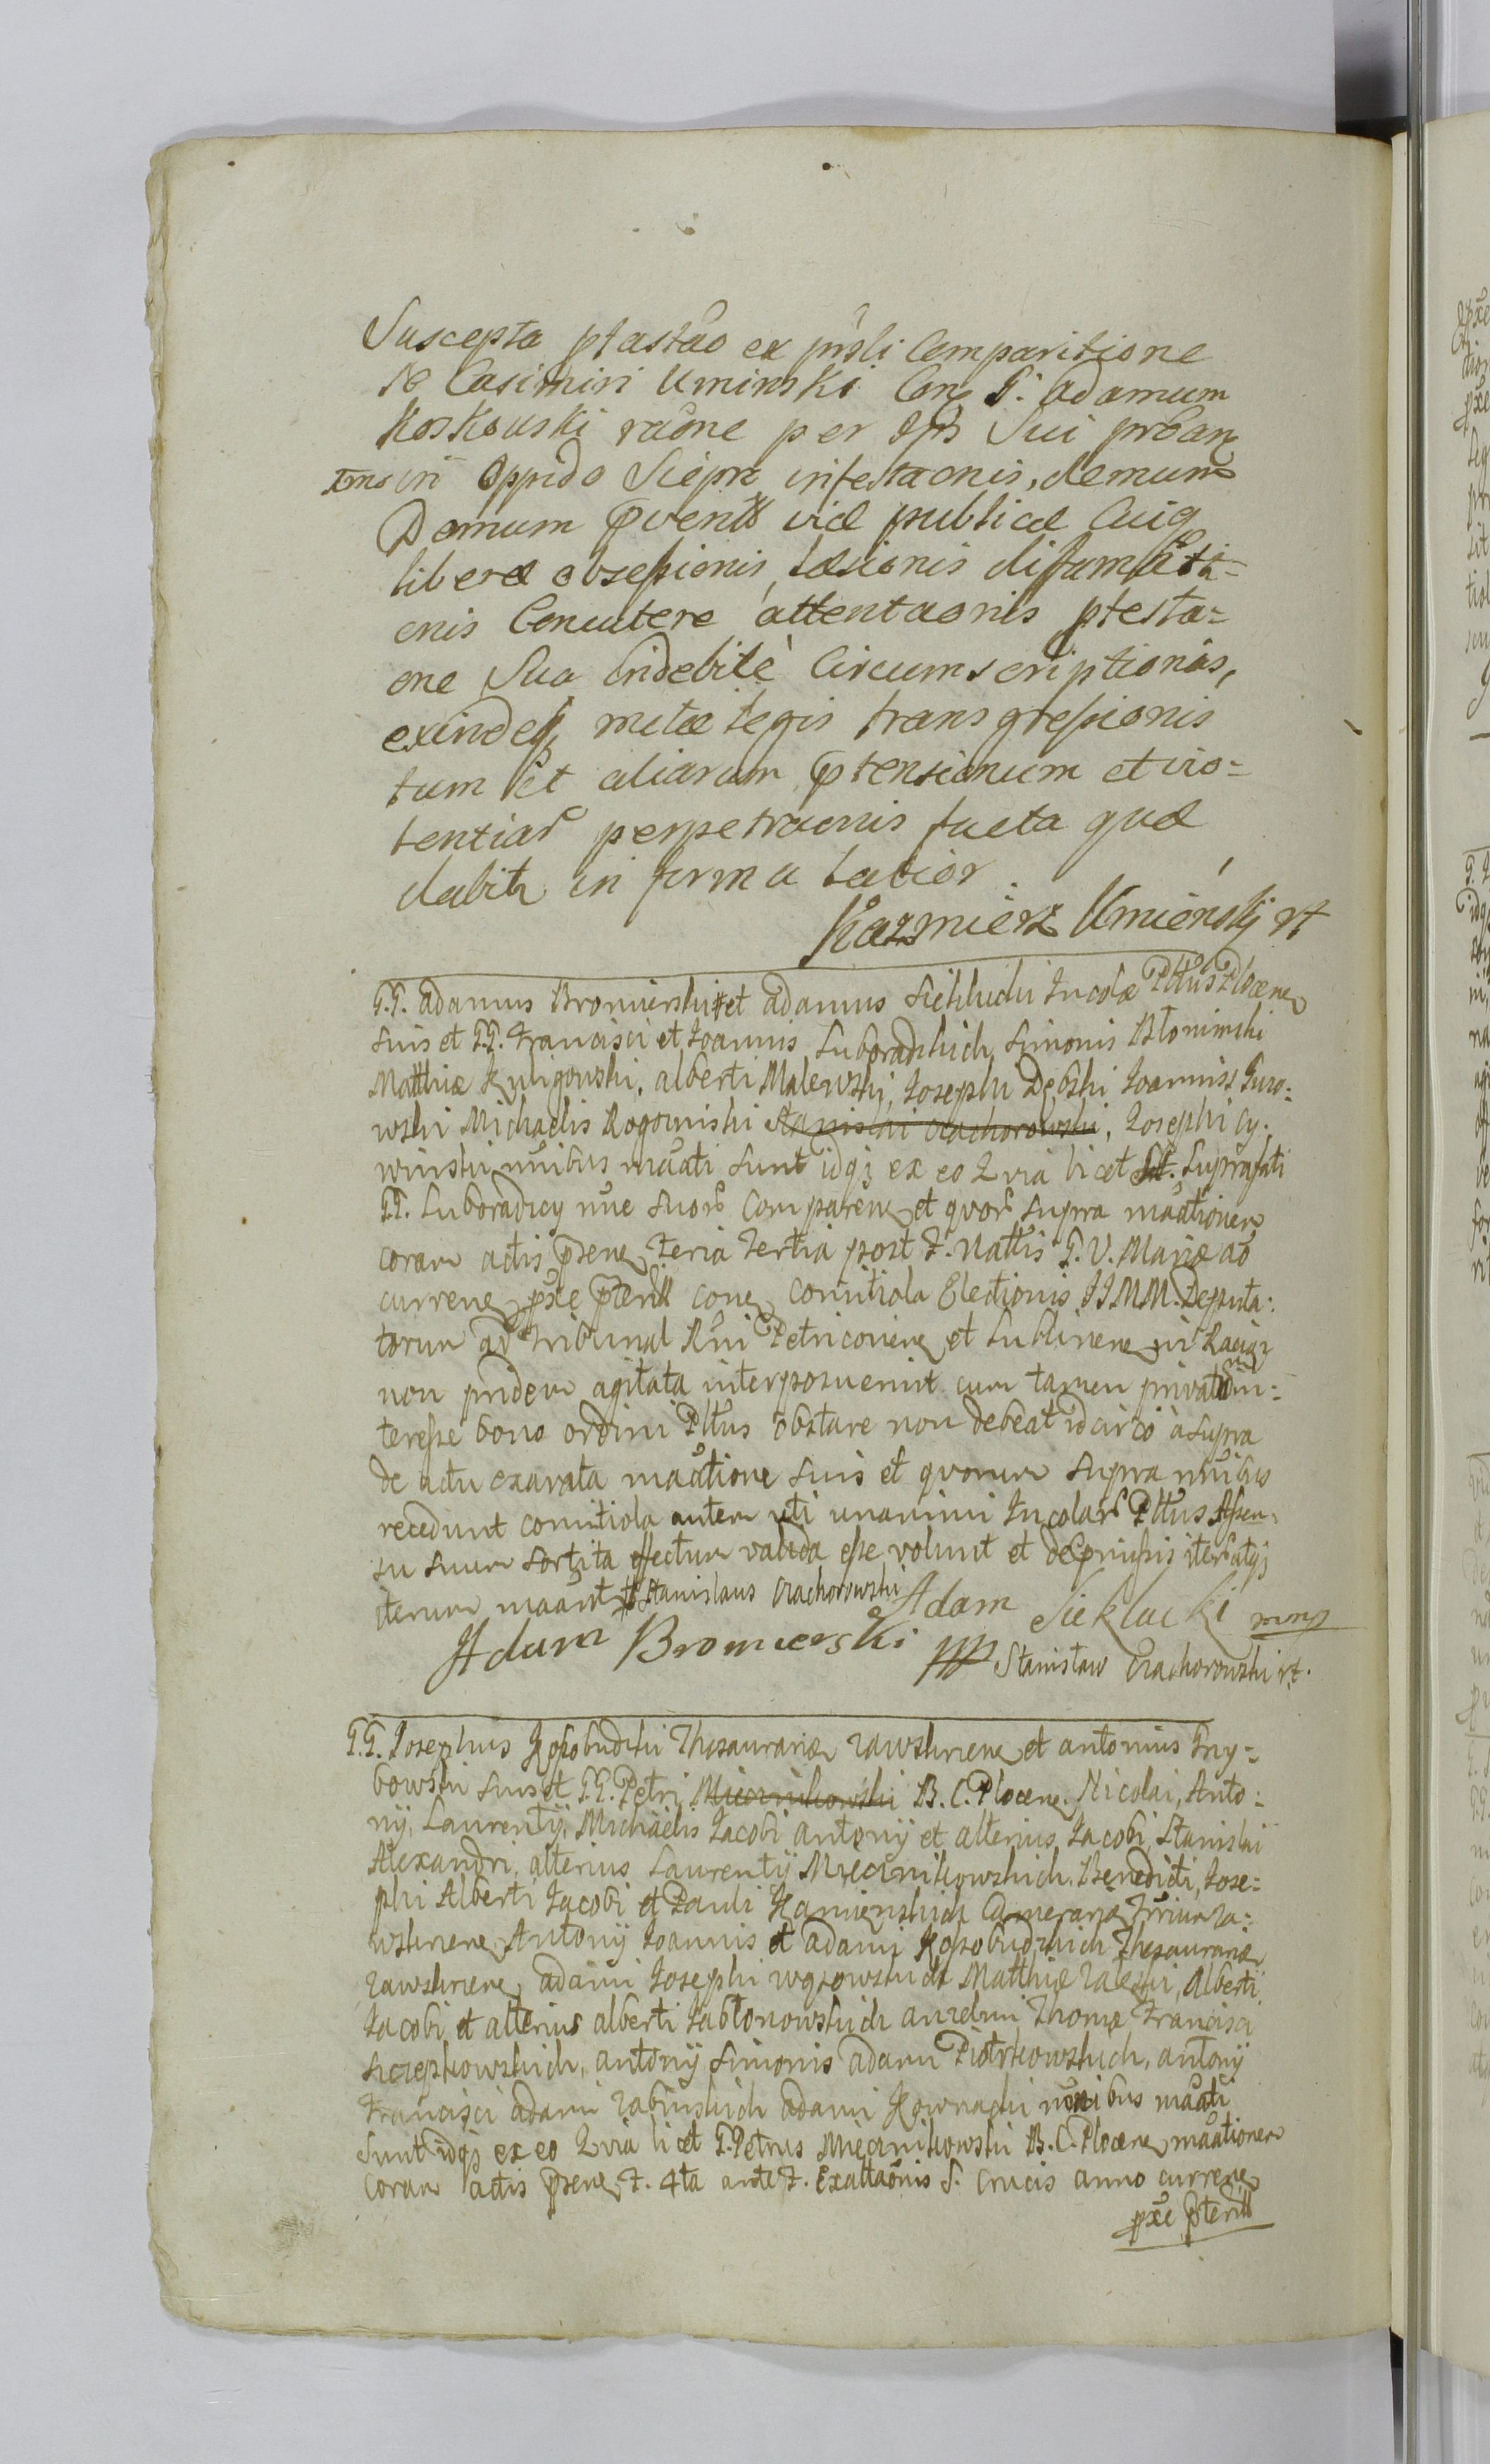 Suscepta ptastao ex prsli Comparitione
N Casimiri Uminski Con G. Adamum
Koskouski raone per Ips Sui proan
Imo in Oppido Siepre infestaonis, demum
Domum Pvents viæ publicæ Cuiq
liberæ obsessionis, læsionis diffamati=
onis Concutere attentaonis ptesta=
one Sua Indebite Circumscriptionis,
exindeq metæ legis transgressionis
tum et aliarum ptensionum et vio=
lentiar perpetraonis facta quæ
dabitr in forma latior
Kazmierz Umienskj rt
G.G. Adamus Bromierski et Adamus Sieklucki Incolæ Pltus Plocens
suis et G.G. Francisci et Joannis Luboradzkich, Simonis Błonimski
Matthiæ Kuligowski, Alberti Malewski, Josephi Dębski Joannis Guro=
wski Michaelis Rogowiski Stanislai Czachorowski, Josephi Cy=
winski nnibus maati sunt idq ex eo Quia licet suprafati
G.G. Luboradzcy nne suor comparens et quor supra maationem
coram actis psens Feria Tertia post F. Nattis B.V. Mariæ ao
currens pxe pterit conq comitiola Electionis JJ.MM. Deputa=
torum ad Tribunal Rni Petriconiens et Lublinens in Raciąż
non pridem agitata interposuerint cum tamen privatum in=
teresse bono ordini Pltus obstare non debeat idcirco à supra
de actu exarata maatione suis et quorum supra nnibus
recedunt comitiola autem uti unanimi Incolar Pltus Assen=
su suum sortita effectum valida esse volunt et de pmissis iter atq
iterum maant Stanislaus Czachorowski
Adam Sieklucki mmp
Adam Bromierski mp Stanisław Czachorowski rt.
G.G. Josephus Kossobudzki Thesaurariæ Zawskrnens et Antonius Gny=
bowski suis et G.G. Petri Miecznikowski B.C. Plocens Nicolai, Anto=
nij, Laurentij, Michaelis Jacobi Antonij et alterius Jacobi Stanislai
Alexandri, alterius Laurentij Miecznikowskich, Benedicti, Jose=
phi Alberti Jacobi et Pauli Kamienskich Camerariæ Trrium Za=
wskrnens Antonij Joannis et Adami Kossobudzkich Thesaurariæ
Zawskrnens Adami Josephi Wgrowskich Matthiæ Zaleski, Alberti
Jacobi et alterius Alberti Jabłonowskich Anzelmi Thomæ Francisci
Szczepkowskich, Antonij Simonis Adami Piotrkowskich, Antonij
Francisci Adami Zabinskich Adami Kownacki nnibus maati
sunt idq ex eo Quia licet G. Petrus Miecznikowski B.C. Plocens maationem
coram actis psens F. 4ta ante F. Exaltaonis S. Crucis anno currens
pxe pterit